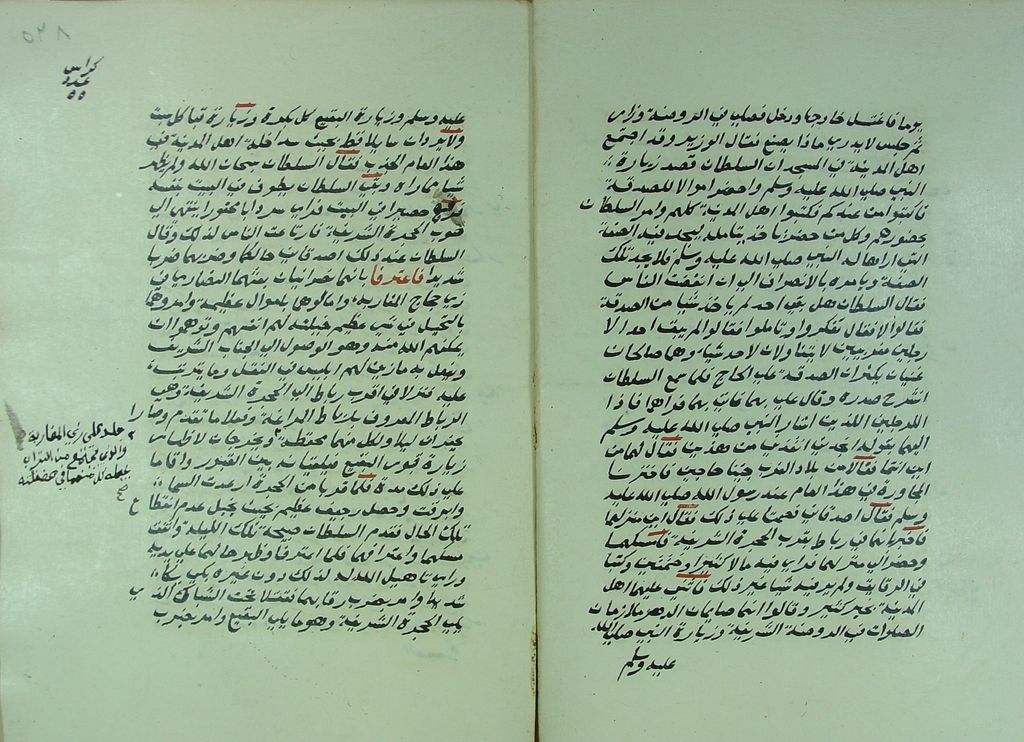 يوما فاغتسل خارجها ودخل فصلى في الروضة وزار
ثم جلس لا يدري ماذا يصنع فقال الوزير وقد اجتمع
اهل المدينة في المسجد ان السلطان قصد زيارة
النبي صلى الله عليه وسلم واحضر اموالا للصدقة
فاكتبوا من عندكم فكتبوا اهل المدينة كلهم وامر السلطان
بحضورهم وكل من حضر ياخذ يتامله ليجد فيه الصفة
التي اراها له النبي صلى الله عليه وسلم فلا يجد تلك
الصفة ويامره بالانصراف الى ان انقضت الناس
فقال السلطان هل بقي احد لم ياخذ شيا من الصدقة
فقالوا لا فقال تفكروا وتاملوا فقالوا لم يبق احد الا
رجلين مغربيين لا يتناولان لاحد شيا وهما صالحان
غنيان يكثران الصدقة على الحاج فلما سمع السلطان
انشرح صدره وقال علي بهما فاتى بهما فراهما فاذا
الرجلين اللذين اشار النبي صلى الله عليه وسلم
اليهما بقوله انجدني انقذني من هذين فقال لهما من
اين انتما فقالا من بلاد المغرب جينا حاجين فاخترنا
المجاورة في هذا العام عند رسول الله صلى الله عليه
وسلم فقال اصدقاني فصمما على ذلك فقال اين منزلهما
فاخبر بانهما في رباط بقرب الحجرة الشريفة فامسكهما
وحضر الى منزلهما فراى فيه مالا كثيرا وختمتين وكتبا
في الرقايق ولم ير فيه شيا غير ذلك فاثنى عليهما اهل
المدينة بخير كثير وقالوا انهما صايمان الدهر ملازمان
الصلوات في الروضة الشريفة وزيارة النبي صلى الله
عليه وسلم
٥٣٨
كراس
عدد
٥٥
عليه وسلم وزيارة البقيع كل بكرة وزيارة قبا كل سبت
ولا يردان سايلا قط بحيث سدا خلة اهل المدينة في
هذا العام المجدب فقال السلطان سبحان الله ولم يظهر
شيا مما راه وبقي السلطان يطوف في البيت بنفسه
فرفع حصيرا في البيت فراى سردابا محفورا ينتهي الى
صوب الحجرة الشريفة فارتاعت الناس لذلك وقال
السلطان عند ذلك اصدقاني حالكما وضربهما ضربا
شديدا فاعترفا بانهما نصرانيان بعثهما النصارى في
زي حجاج المغاربة وامالوهما باموال عظيمة وامروهما
بالتحيل في شي عظيم خيلته لهم انفسهم وتوهموا ان
يمكنهم الله منه وهو الوصول الى الجناب الشريف
ويفعل به ما زين لهم ابليس في النقل وما يترتب
عليه فنزلا في اقرب رباط الى الحجرة الشريفة وهي
الرباط المعروف برباط المراغة وفعلا ما تقدم وصارا
يحفران ليلا ولكل منهما محفظة ويخرجان لاظهار
زيارة قبور البقيع فيلقيانه بين القبور واقاما
على ذلك مدة فلما قربا من الحجرة ارعدت السماء
وابرقت وحصل رجيف عظيم بحيث يخيل عدم انقطاع
تلك الجبال فقدم السلطان صبيحة تلك الليلة واتفق
مسكهما واعترافهما فلما اعترفا وظهر حالهما على يديه
وراى تاهيل الله له لذلك دون غيره بكى بكاء
شديدا وامر بضرب رقابهما فقتلا تحت الشباك الذي
يلي الحجرة الشريفة وهو مما يلي البقيع وامر بضرب
جلد على زي المغاربة